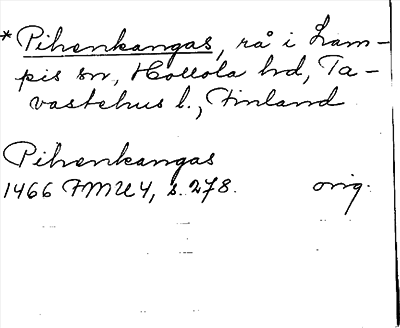 *Pihenkangas, rå i Lam-
pis sn, Hollola hd, Ta-
vastehus l., Finland
Pihenkangas
1466 FMU 4, s. 278. orig.